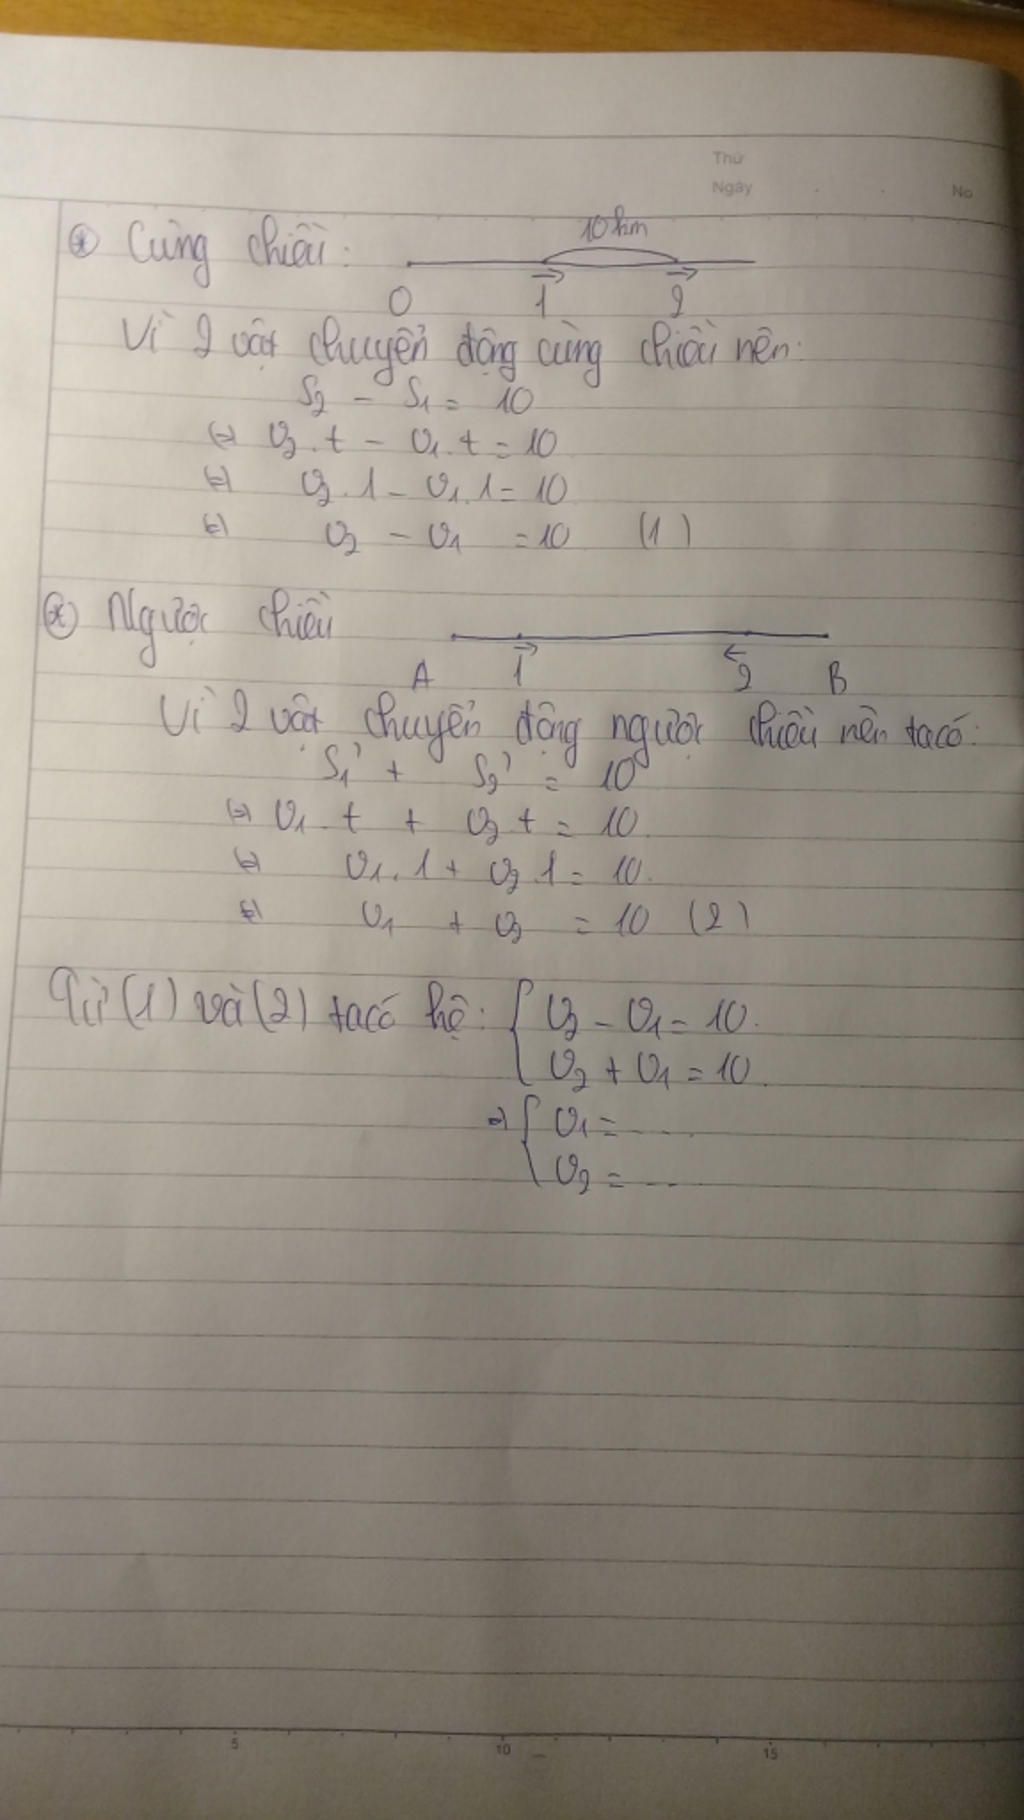 Thứ
Ngày
No
* Cùng chiều:
10km
O 1 2
Vì 2 vật chuyển động cùng chiều nên:
S2 - S1 = 10
⇔ v2.t - v1.t = 10
⇔ v2.1 - v1.1 = 10
⇔ v2 - v1 = 10 (1)
* Ngược chiều
A 1 2 B
Vì 2 vật chuyển động ngược chiều nên ta có:
S1' + S2' = 10
⇔ v1.t + v2.t = 10
⇔ v1.1 + v2.1 = 10.
⇔ v1 + v2 = 10 (2)
Từ (1) và (2) ta có hệ: { v2 - v1 = 10.
v2 + v1 = 10.
⇒ { v1 = ....
v2 = ....
5 10 15